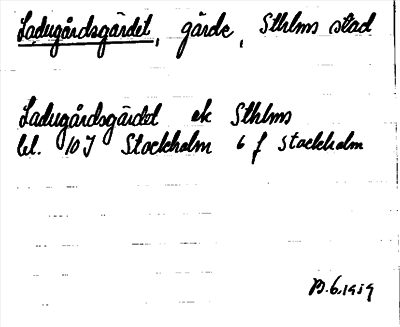 Ladugårdsgärdet, gärde, Sthlms stad
Ladugårdsgärdet ek Sthlms
bl. 10 I Stockholm 6 f Stockholm